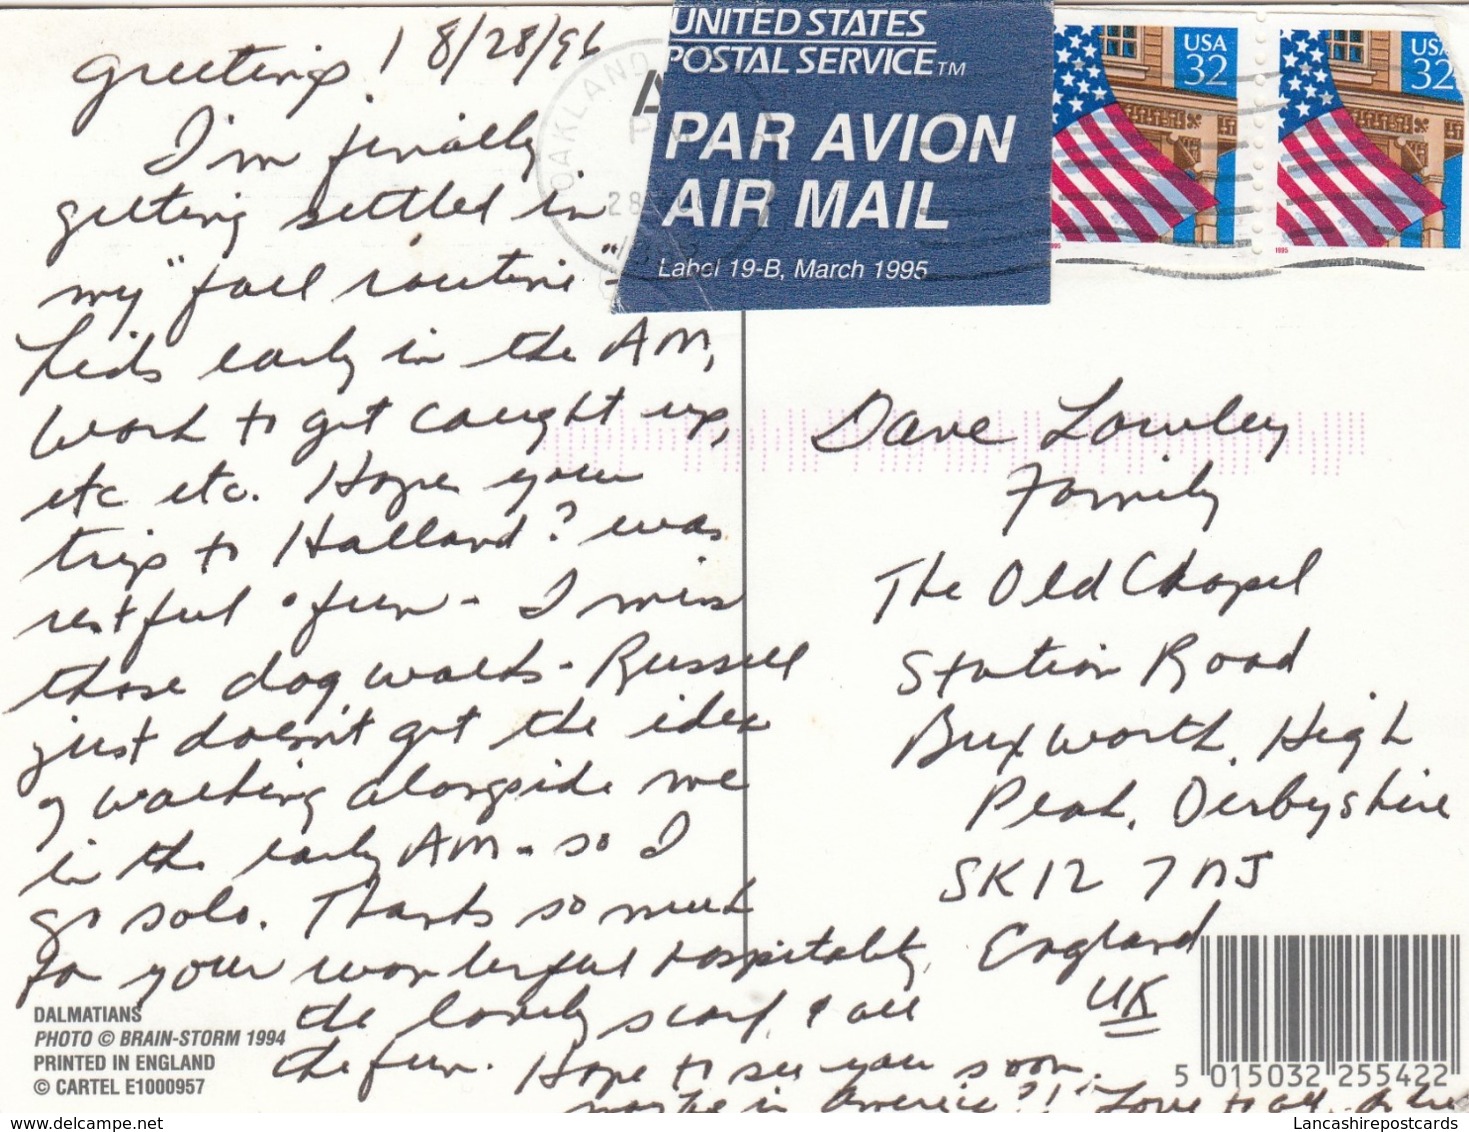 Greetings! 8/28/96
I'm finally
getting settled in
my "fall routine" -
kids early in the AM,
work to get caught up,
etc etc. Hope your
trip to Holland? was
restful & fun - I miss
those dog walks - Russell
just doesn't get the idea
of walking alongside me
in the early AM - so I
go solo. Thanks so much
for your wonderful hospitality,
the lovely scarf, & all
the fun. Hope to see you soon.
maybe in America?! Love to all,
DALMATIANS
PHOTO © BRAIN-STORM 1994
PRINTED IN ENGLAND
© CARTEL E1000957
OAKLAND
PM
28
UNITED STATES
POSTAL SERVICE TM
PAR AVION
AIR MAIL
Label 19-B, March 1995
USA
32
1995
USA
32
1995
Dave Lowley
Family
The Old Chapel
Station Road
Buxworth, High
Peak, Derbyshire
SK12 7NJ
England
UK
5 015032 255422
www.delcampe.net
Lancashirepostcards